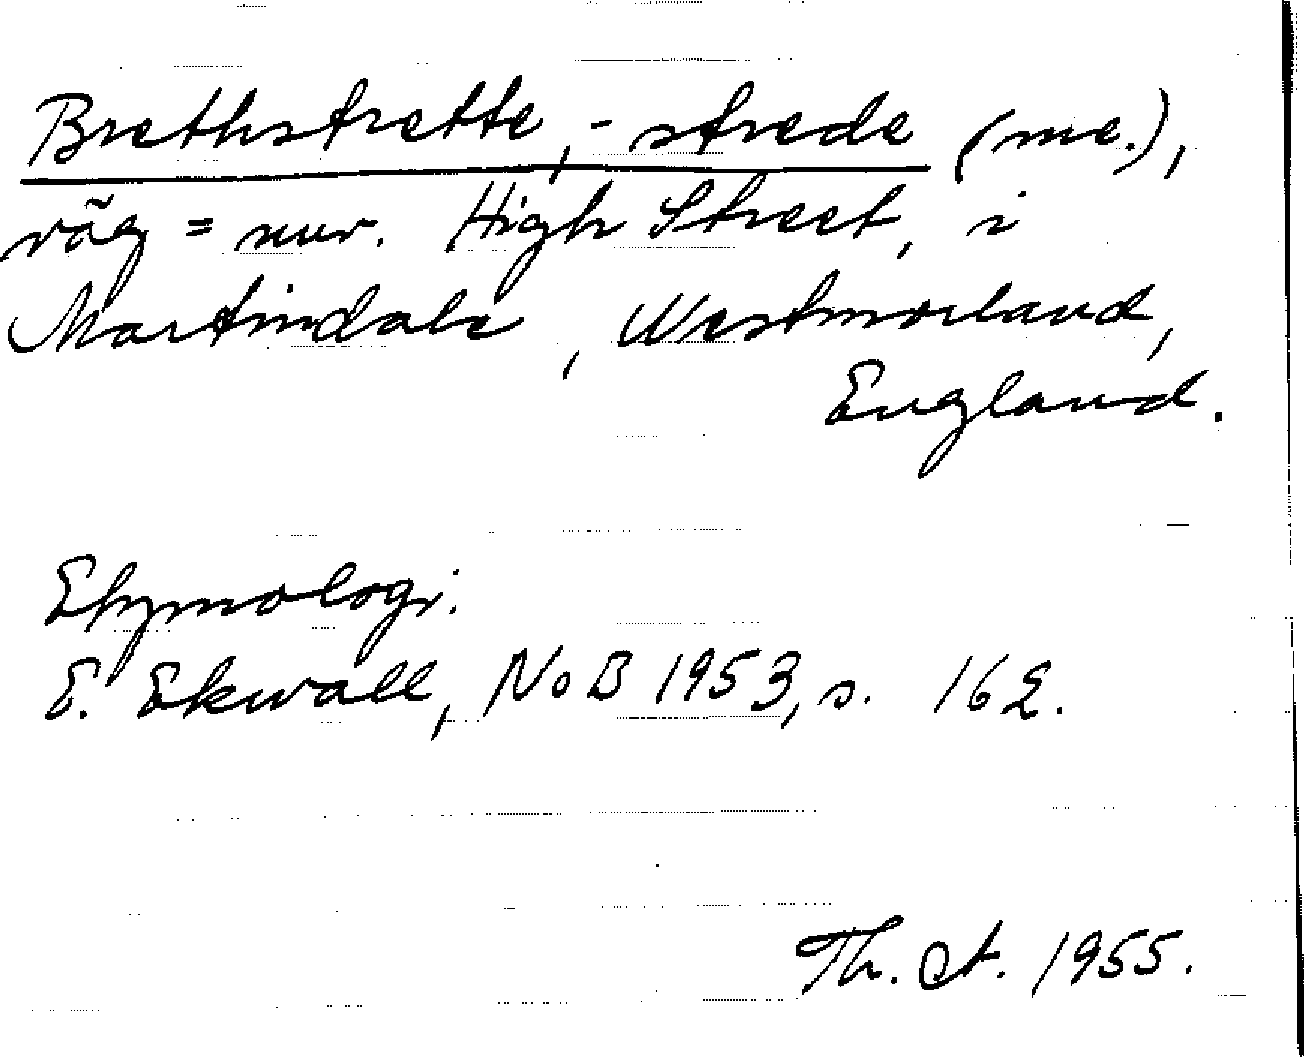 Brethstrette, -strede (me.),
väg = nuv. High Street, i
Martindale, Westmorland,
England.
Etymologi.
E. Ekwall, NoB 1953, s. 162.
Th. A. 1955.